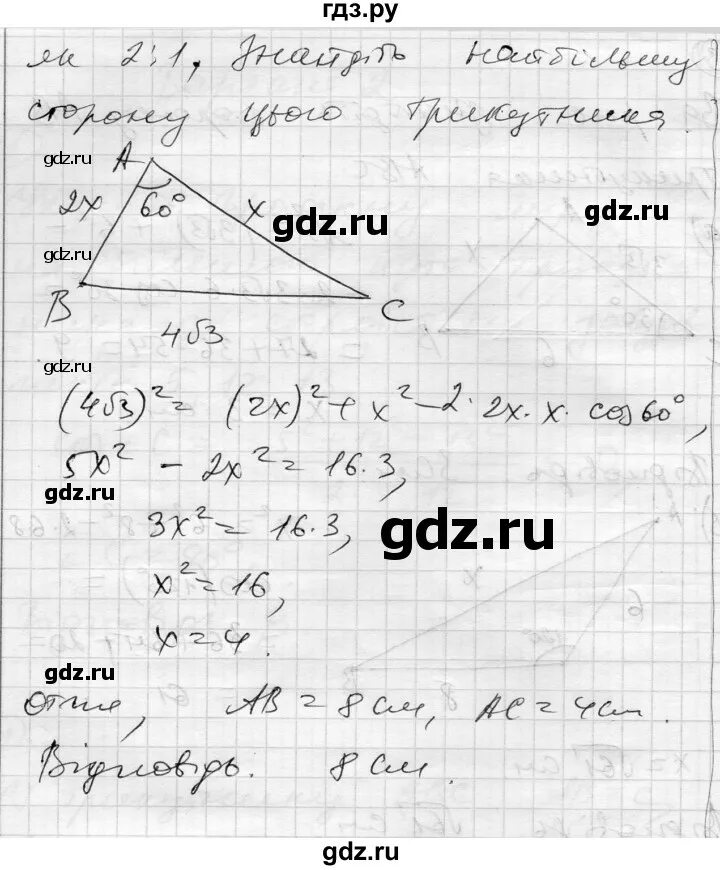 гдз.ру
як 2:1, Знайдіть найбільшу
сторону цього трикутника
gdz.ru
A
2x 60° x
gdz.ru
gdz.ru
gdz.ru
B
C
4√3
gdz.ru
(4√3)² = (2x)² + x² - 2 · 2x · x · cos60°,
5x² - 2x² = 16·3,
gdz.ru
3x² = 16·3,
gdz.ru
x² = 16,
x = 4.
gdz.ru
Отже, AB = 8 см, AC = 4 см.
Відповідь. 8 см.
gdz.ru